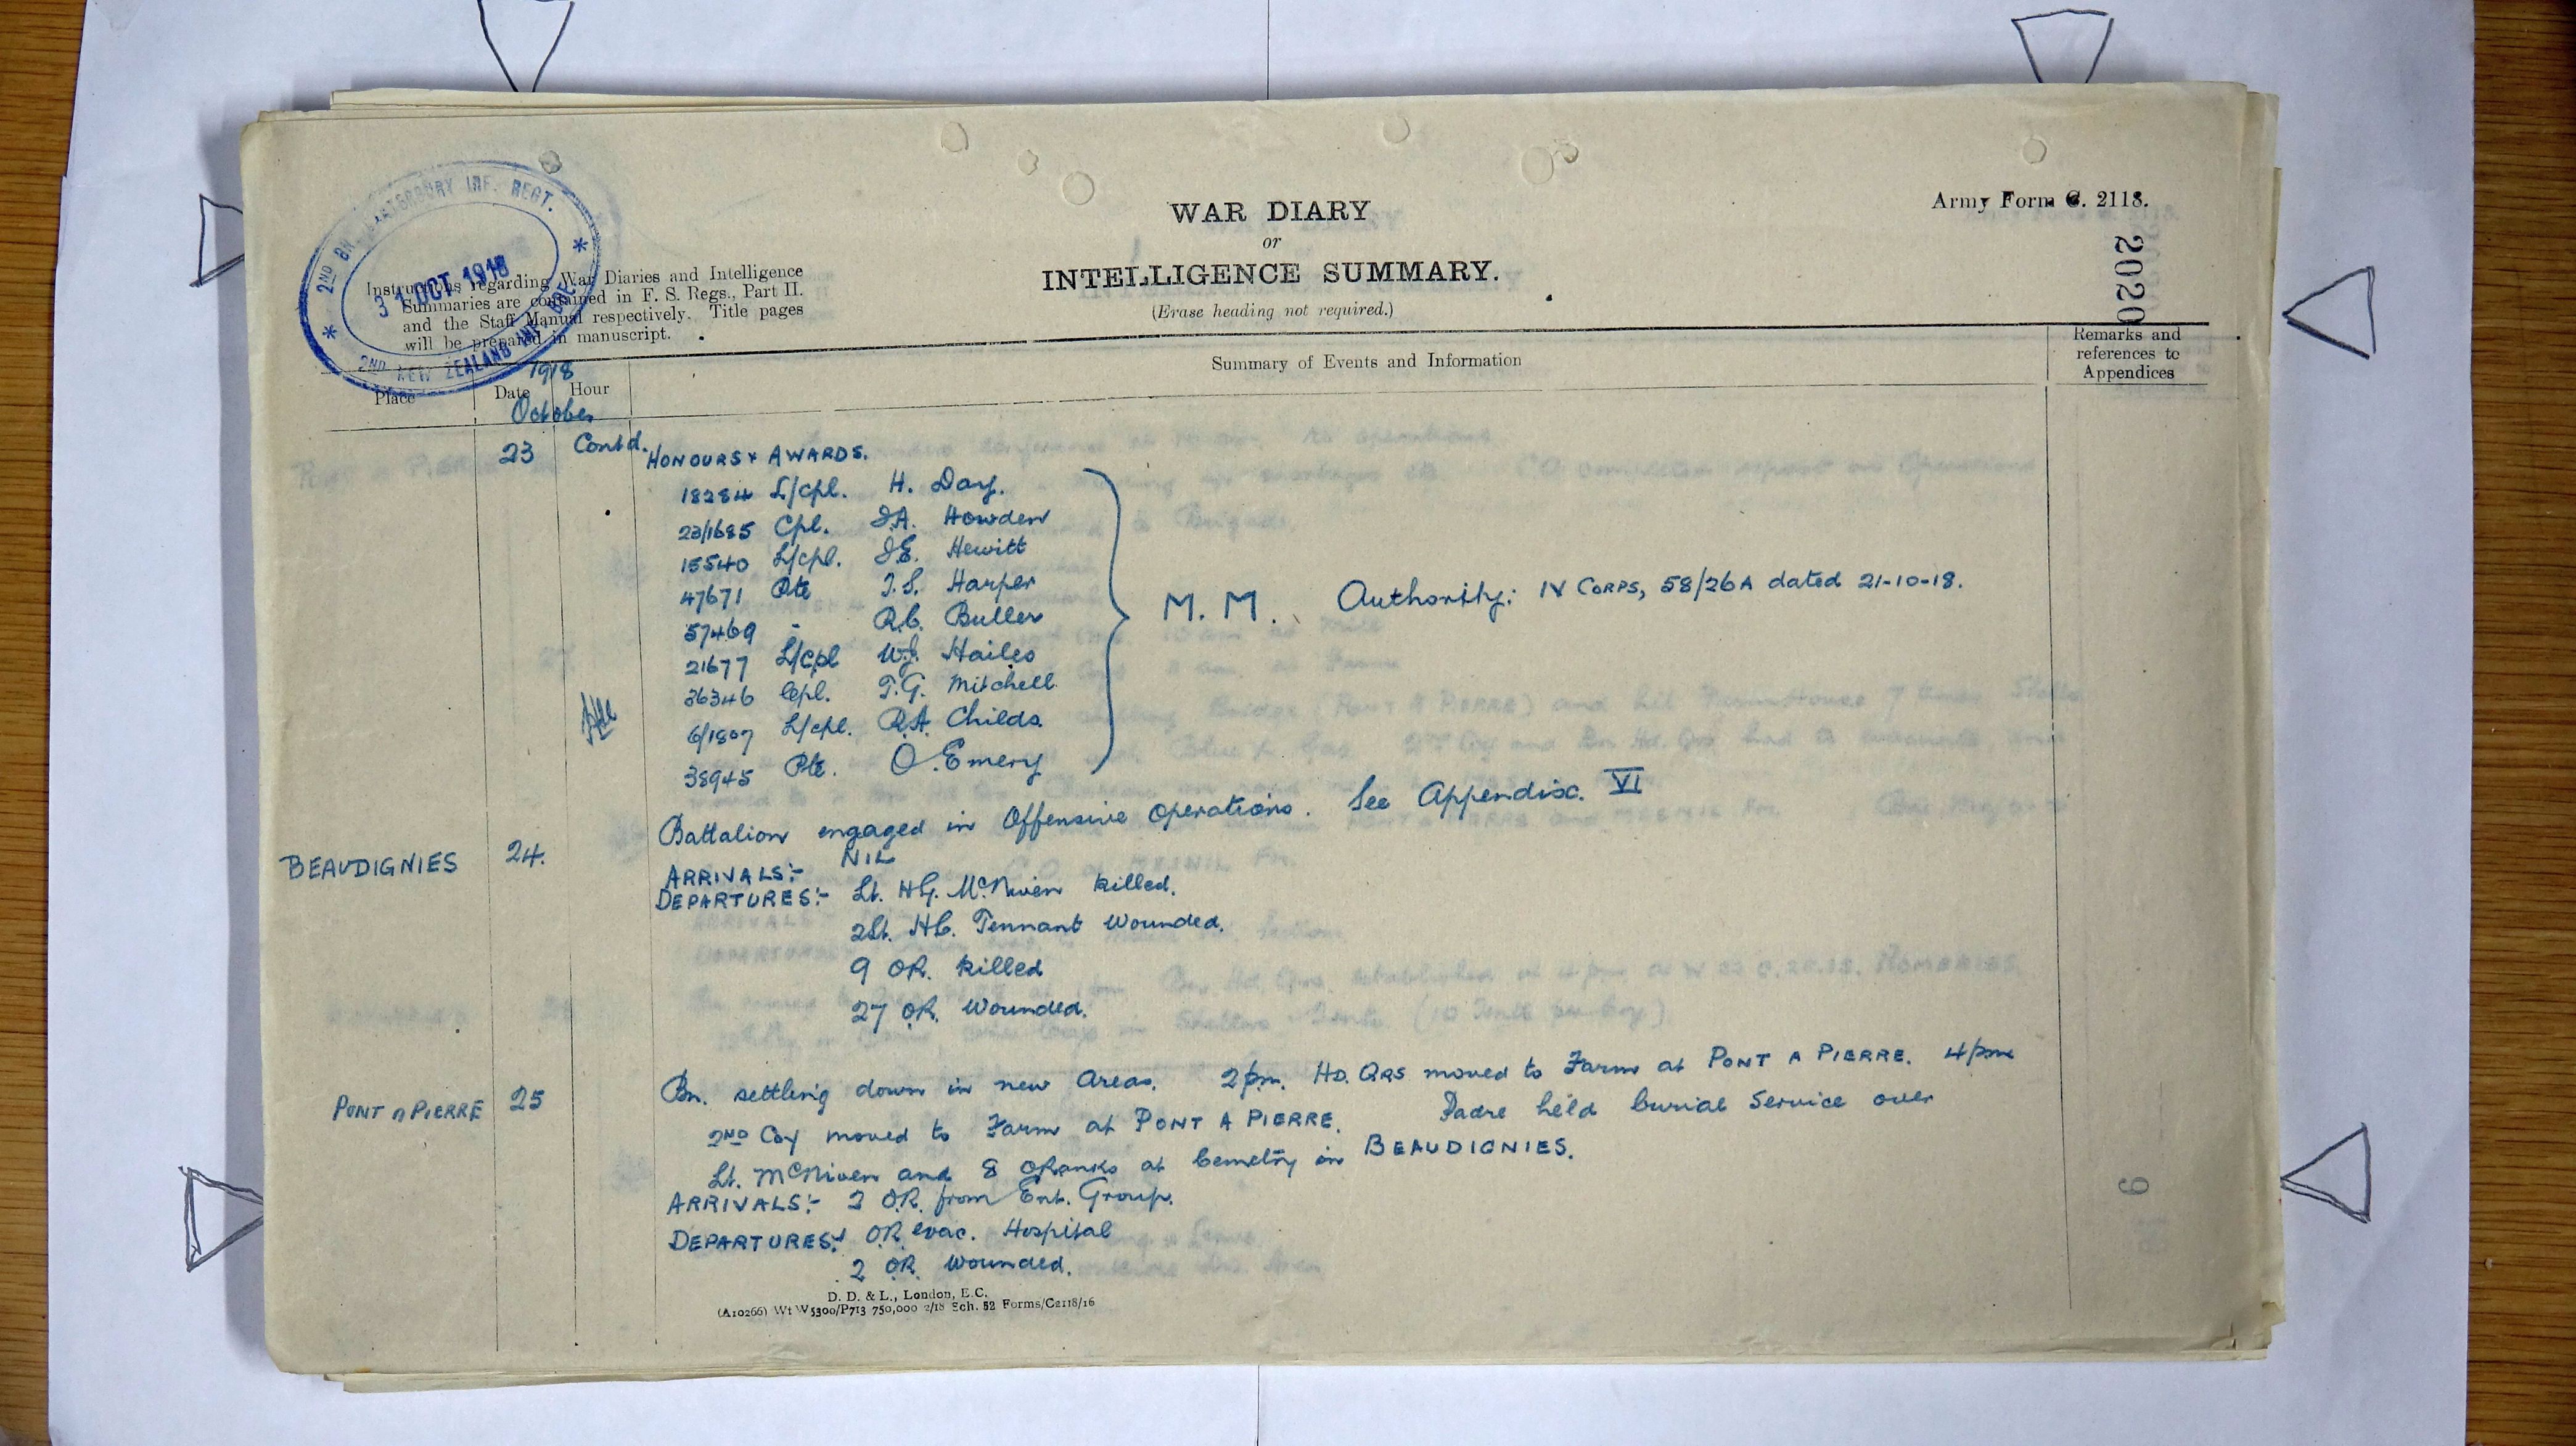 WAR DIARY
or
INTELLIGENCE SUMMARY.
(Erase heading not required.)
Army Form C. 2118.
2020
2ND BN. CANTERBURY INF. REGT.
31 OCT 1918
2ND NEW ZEALAND INF. BDE.
Instructions regarding War Diaries and Intelligence
Summaries are contained in F. S. Regs., Part II.
and the Staff Manual respectively. Title pages
will be prepared in manuscript.
Place Date Hour
1918
October
Summary of Events and Information
Remarks and
references to
Appendices
23 Contd. HONOURS & AWARDS.
18284 L/cpl. H. Day.
23/1685 Cpl. J.A. Howden
15540 L/cpl. J.E. Hewitt
47671 Pte T.S. Harper
57469 - R.C. Buller
21677 L/cpl W.J. Hailes
36346 Cpl. T.G. Mitchell
6/1807 L/cpl. R.A. Childs.
38945 Pte. O. Emery
M.M. Authority: IV CORPS, 58/26A dated 21-10-18.
BEAUDIGNIES 24. Battalion engaged in Offensive Operations. See Appendix. VI
ARRIVALS:- NIL
DEPARTURES:- Lt. H.G. McNiven killed.
2Lt. H.C. Tennant Wounded.
9 OR. killed
27 OR. Wounded.
PONT A PIERRE 25 Bn. settling down in new Areas. 2pm. HD. QRS moved to Farm at PONT A PIERRE. 4pm
2ND Coy moved to Farm at PONT A PIERRE. Padre held burial Service over
Lt. McNiven and 8 ORanks at Cemetry in BEAUDIGNIES.
ARRIVALS:- OR. from Ent. Group.
DEPARTURES: OR. evac. Hospital
2 OR. Wounded.
D. D. & L., London, E.C.
(A10266) Wt W5300/P713 750,000 2/18 Sch. 52 Forms/C2118/16